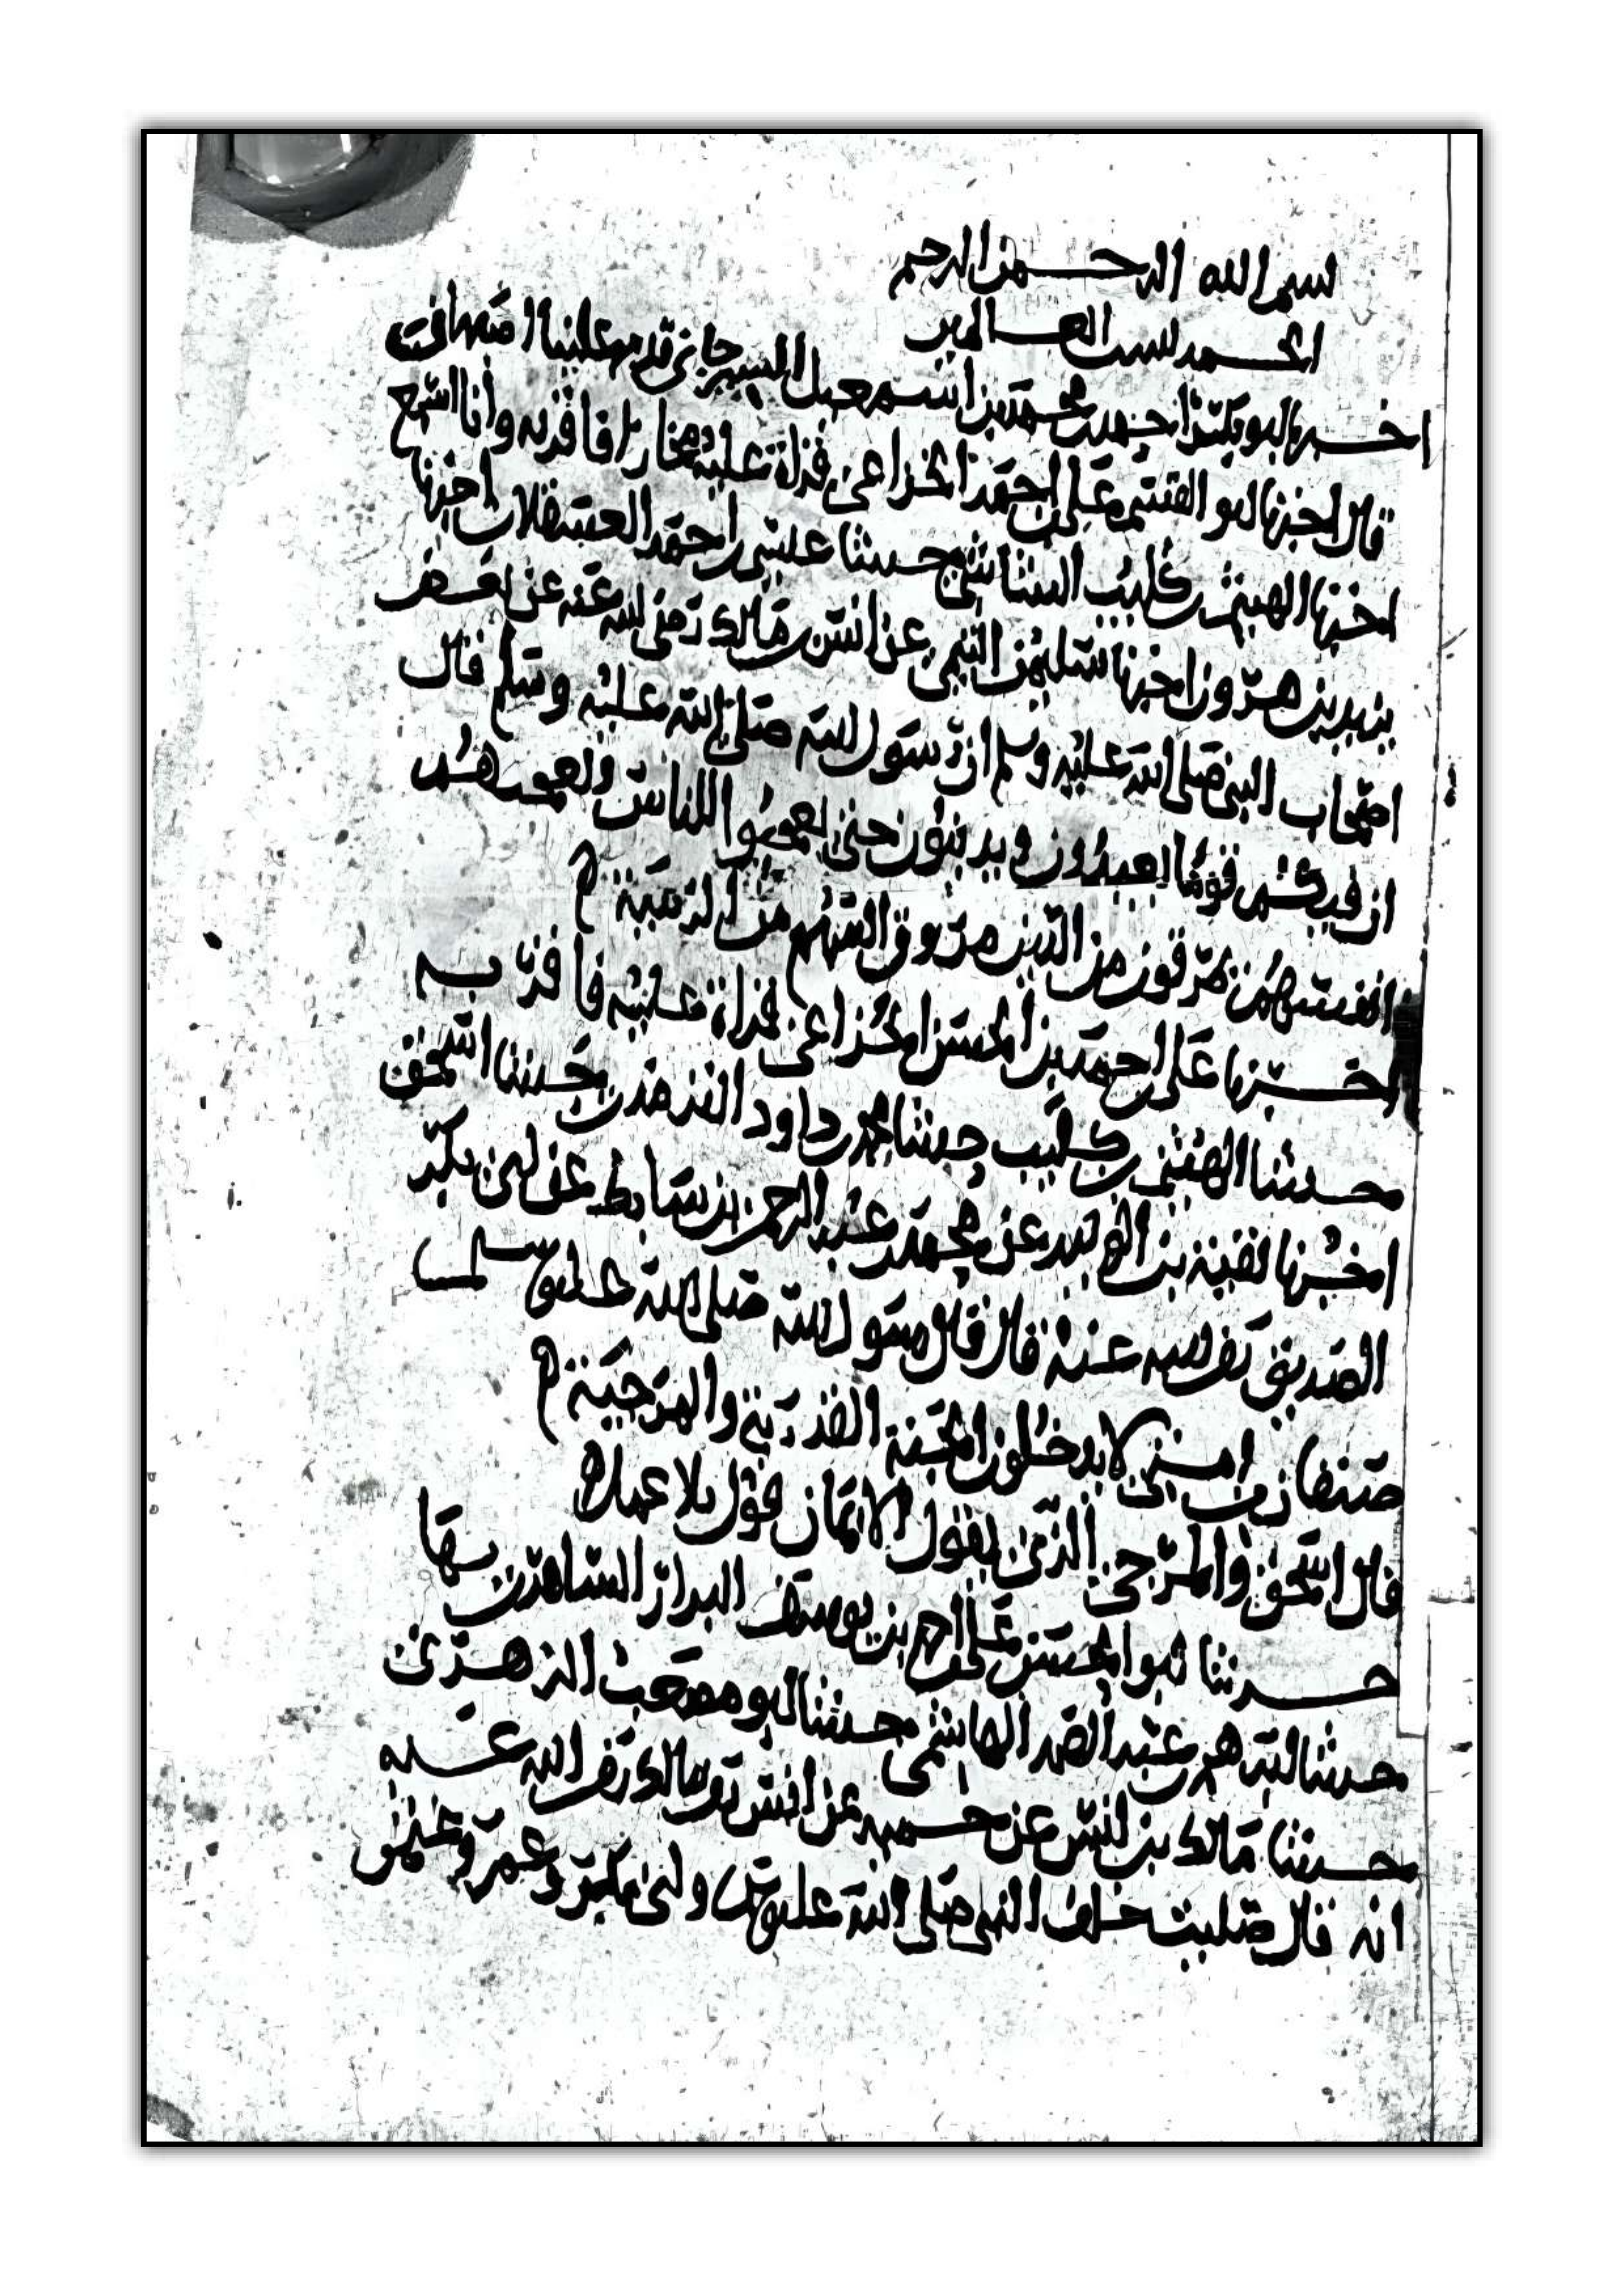 بسم الله الرحمن الرحيم
الحمد لله رب العالمين
اخبرنا ابو بكر احمد بن محمد بن اسمعيل السيرجاني قدم علينا
قال اخبرنا ابو القسم علي بن احمد الخزاعي قراة عليه ببخارا فاقر به وانا اسمع
اخبرنا الهيثم بن كليب الشاشي حدثنا عيسى بن احمد العسقلاني اخبرنا
يزيد بن هرون اخبرنا سليمن التيمي عن انس بن مالك رضي الله عنه عن بعض
اصحاب النبي صلى الله عليه وسلم ان رسول الله صلى الله عليه وسلم قال
ان فيكم قوما يعبدون ويدينون حتى يعجبوا الناس وتعجبهم
انفسهم يمرقون من الدين مروق السهم من الرمية
اخبرنا علي بن احمد بن الحسن الخزاعي قراة عليه فاقر به
حدثنا الهيثم بن كليب حدثنا محمد بن داود حدثنا اسحق
اخبرنا بقية بن الوليد عن محمد بن عبد الرحمن بن سابط عن ابي بكر
الصديق رضي الله عنه قال قال رسول الله صلى الله عليه وسلم
صنفان من امتي لا يدخلون الجنة القدرية والمرجية
قال اسحق والمرجي الذي يقول الايمان قول بلا عمل
حدثنا ابو الحسن علي بن احمد بن يوسف البزاز بها
حدثنا ابرهيم بن عبد الصمد الهاشمي حدثنا ابو مصعب الزهري
حدثنا مالك بن انس عن حميد عن انس بن مالك رضي الله عنه
انه قال صليت خلف النبي صلى الله عليه وسلم وابي بكر وعمر وعثمن